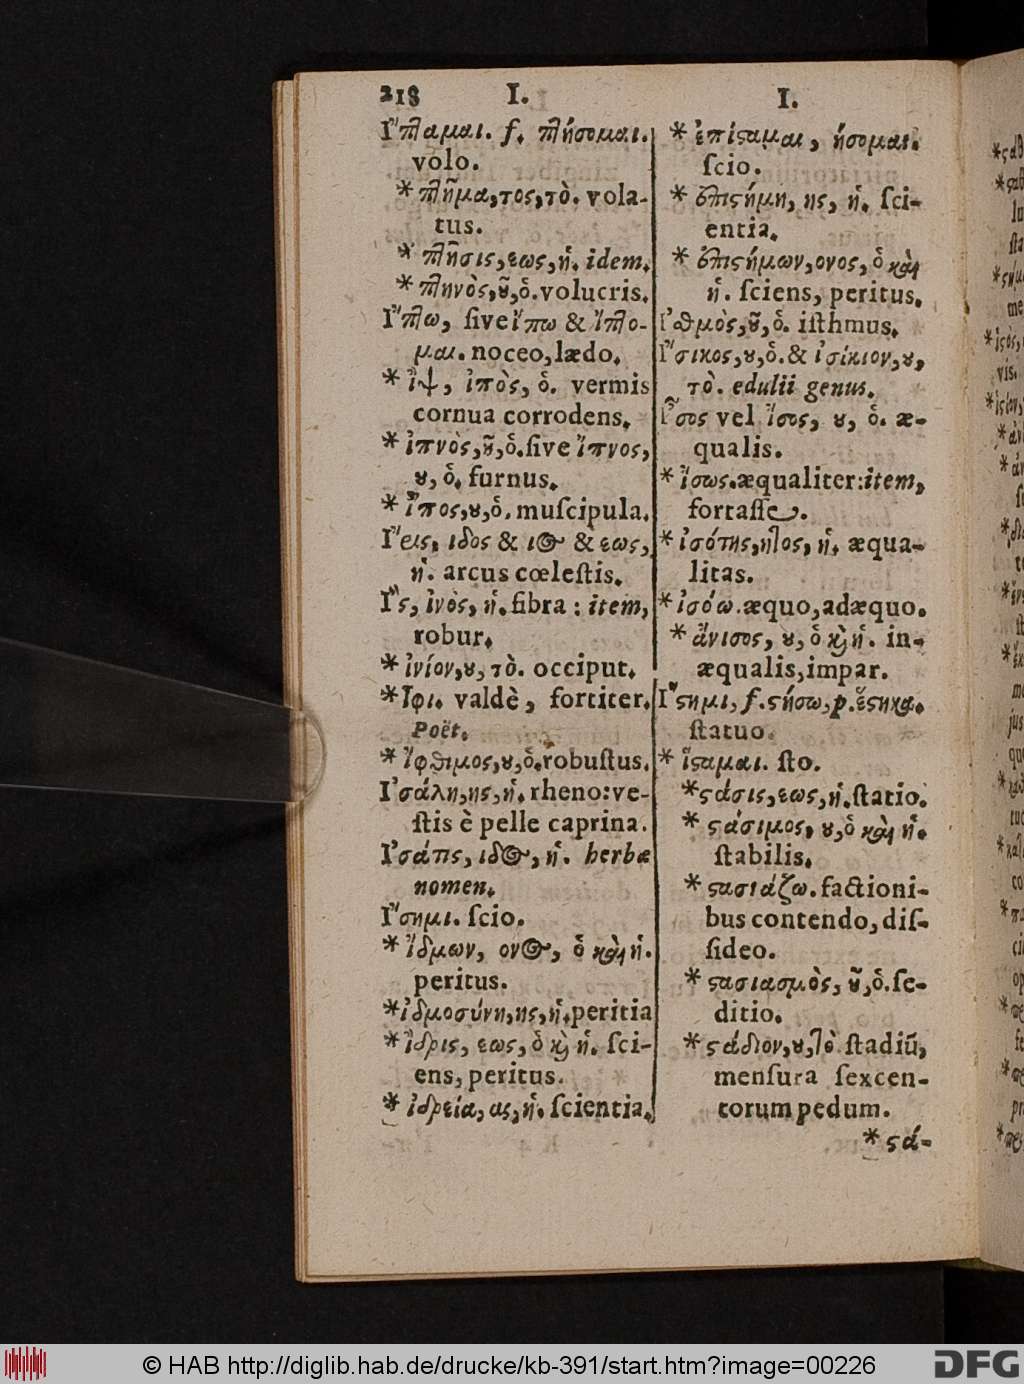 218 I. I.
Ἵπταμαι. f. πτήσομαι.
volo.
* πτῆμα,τος,τὸ. vola-
tus.
* πτῆσις,εως,ἡ. idem.
* πτηνὸς,οῦ,ὁ. volucris.
Ἵπτω, ſive ἵπω & ἵπτο-
μαι. noceo, lædo.
* ἲψ, ἰπὸς, ὁ. vermis
cornua corrodens.
* ἰπνὸς,οῦ,ὁ. ſive ἵπνος,
ου, ὁ. furnus.
* ἶπος,ου,ὁ. muſcipula.
Ἶεις, ιδος & ιος & εως,
ἡ. arcus cœleſtis.
Ἲς, ἰνὸς, ἡ. fibra : item,
robur.
* ἰνίον,ου, τὸ. occiput.
* Ἶφι. valdè, fortiter.
Poët.
* Ἴφθιμος,ου,ὁ. robuſtus.
Ἰσάλη,ης,ἡ. rheno: ve-
ſtis è pelle caprina.
Ἰσάτις, ιδος, ἡ. herbæ
nomen.
Ἴσημι. ſcio.
* ἴδμων, ονος, ὁ καὶ ἡ.
peritus.
* ἰδμοσύνη,ης,ἡ. peritia
* ἴδρις, εως, ὁ καὶ ἡ. ſci-
ens, peritus.
* ἰδρεία, ας, ἡ. ſcientia.
* ἐπίσταμαι, ήσομαι.
ſcio.
* ἐπιστήμη, ης, ἡ. ſci-
entia.
* ἐπιστήμων,ονος, ὁ καὶ
ἡ. ſciens, peritus.
Ἰσθμὸς,οῦ, ὁ. iſthmus.
Ἴσικος,ου,ὁ. & ἰσίκιον,ου,
τὸ. edulii genus.
Ἶσος vel ἴσος, ου, ὁ. æ-
qualis.
* ἴσως. æqualiter: item,
fortaſſe.
* ἰσότης,ητος, ἡ. æqua-
litas.
* ἰσόω. æquo, adæquo.
* ἄνισος, ου, ὁ καὶ ἡ. in-
æqualis, impar.
Ἵστημι, f. στήσω, p. ἕστηκα.
ſtatuo.
* ἵσταμαι. ſto.
* στάσις,εως,ἡ. ſtatio.
* στάσιμος, ου, ὁ καὶ ἡ.
ſtabilis.
* στασιάζω. factioni-
bus contendo, diſ-
ſideo.
* στασιασμὸς, οῦ, ὁ. ſe-
ditio.
* στάδιον,ου,τὸ. ſtadiũ,
menſura ſexcen-
torum pedum.
* στά-
© HAB http://diglib.hab.de/drucke/kb-391/start.htm?image=00226
DFG